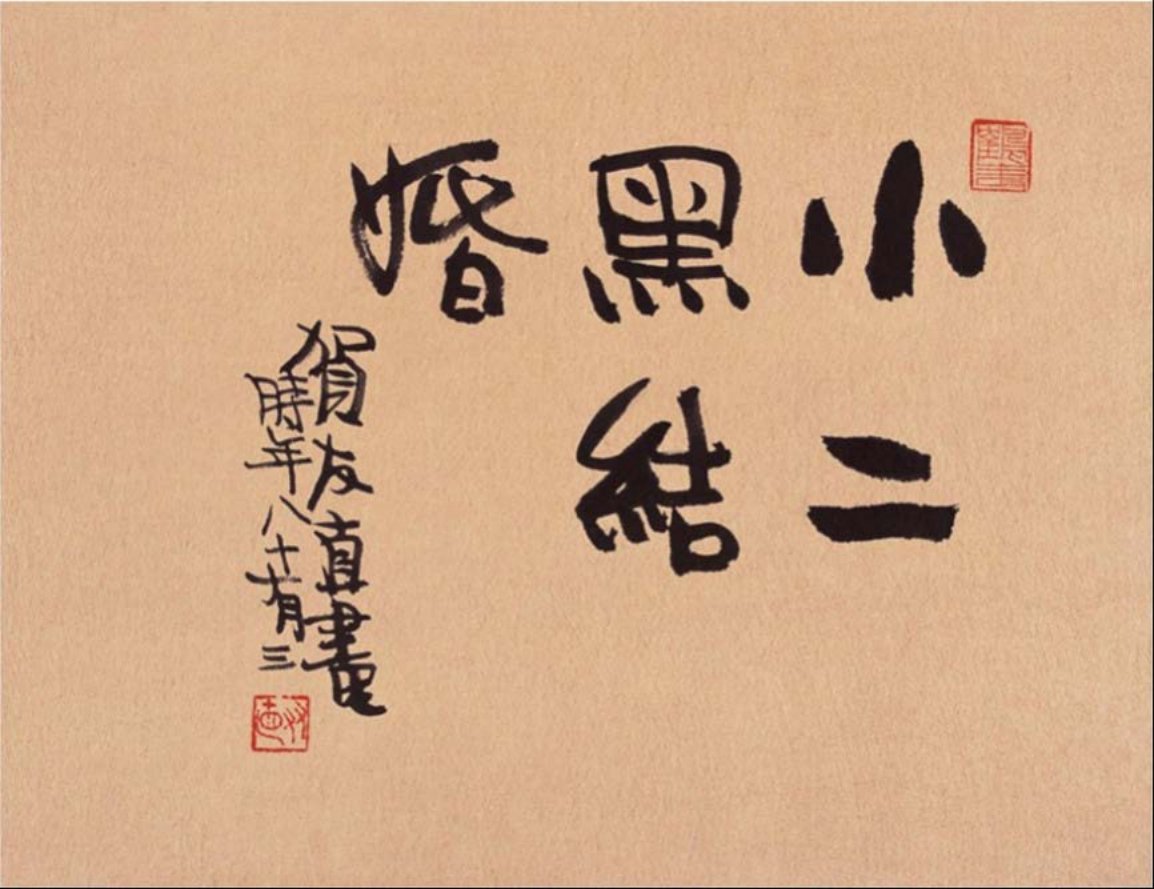 小二
黑結
婚
賀友直畫
時年八十有三
友直